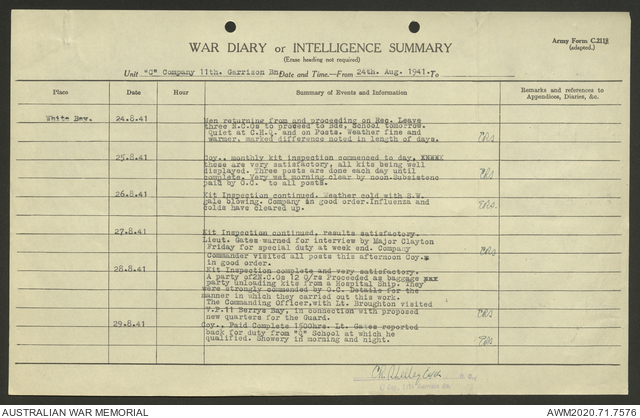 Army Form C.2118
(adapted.)
WAR DIARY or INTELLIGENCE SUMMARY
(Erase heading not required)
Unit "C" Company 11th. Garrison Bn. Date and Time.—From 24th. Aug. 1941. To
Place Date Hour Summary of Events and Information Remarks and references to
Appendices, Diaries, &c.
White Bay. 24.8.41 Men returning from and proceeding on Rec. Leave
three N.C.Os to proceed to Bde. School tomorrow.
Quiet at C.H.Q. and on Posts. Weather fine and
warmer, marked difference noted in length of days.
25.8.41 Coy., monthly kit inspection commenced to day, xxxxx
these are very satisfactory, all kits being well
displayed. Three posts are done each day until
complete. Very wet morning clear by noon. Subsistenc
paid by O.C. to all posts.
26.8.41 Kit Inspection continued. Weather cold with S.W.
gale blowing. Company in good order. Influenza and
colds have cleared up.
27.8.41 Kit Inspection continued, results satisfactory.
Lieut. Gates warned for interview by Major Clayton
Friday for special duty at week end. Company
Commander visited all posts this afternoon Coy.
in good order.
28.8.41 Kit Inspection complete and very satisfactory.
A party of 2 N.C.Os 12 O/rs Proceeded as baggage xxx
party unloading kits from a Hospital Ship. They
were strongly commended by O.C. Details for the
manner in which they carried out this work.
The Commanding Officer, with Lt. Broughton visited
V.P.11 Berrys Bay, in connection with proposed
new quarters for the Guard.
29.8.41 Coy., Paid Complete 1500hrs. Lt. Gates reported
back for duty from "G" School at which he
qualified. Showery in morning and night.
AUSTRALIAN WAR MEMORIAL AWM2020.71.7576